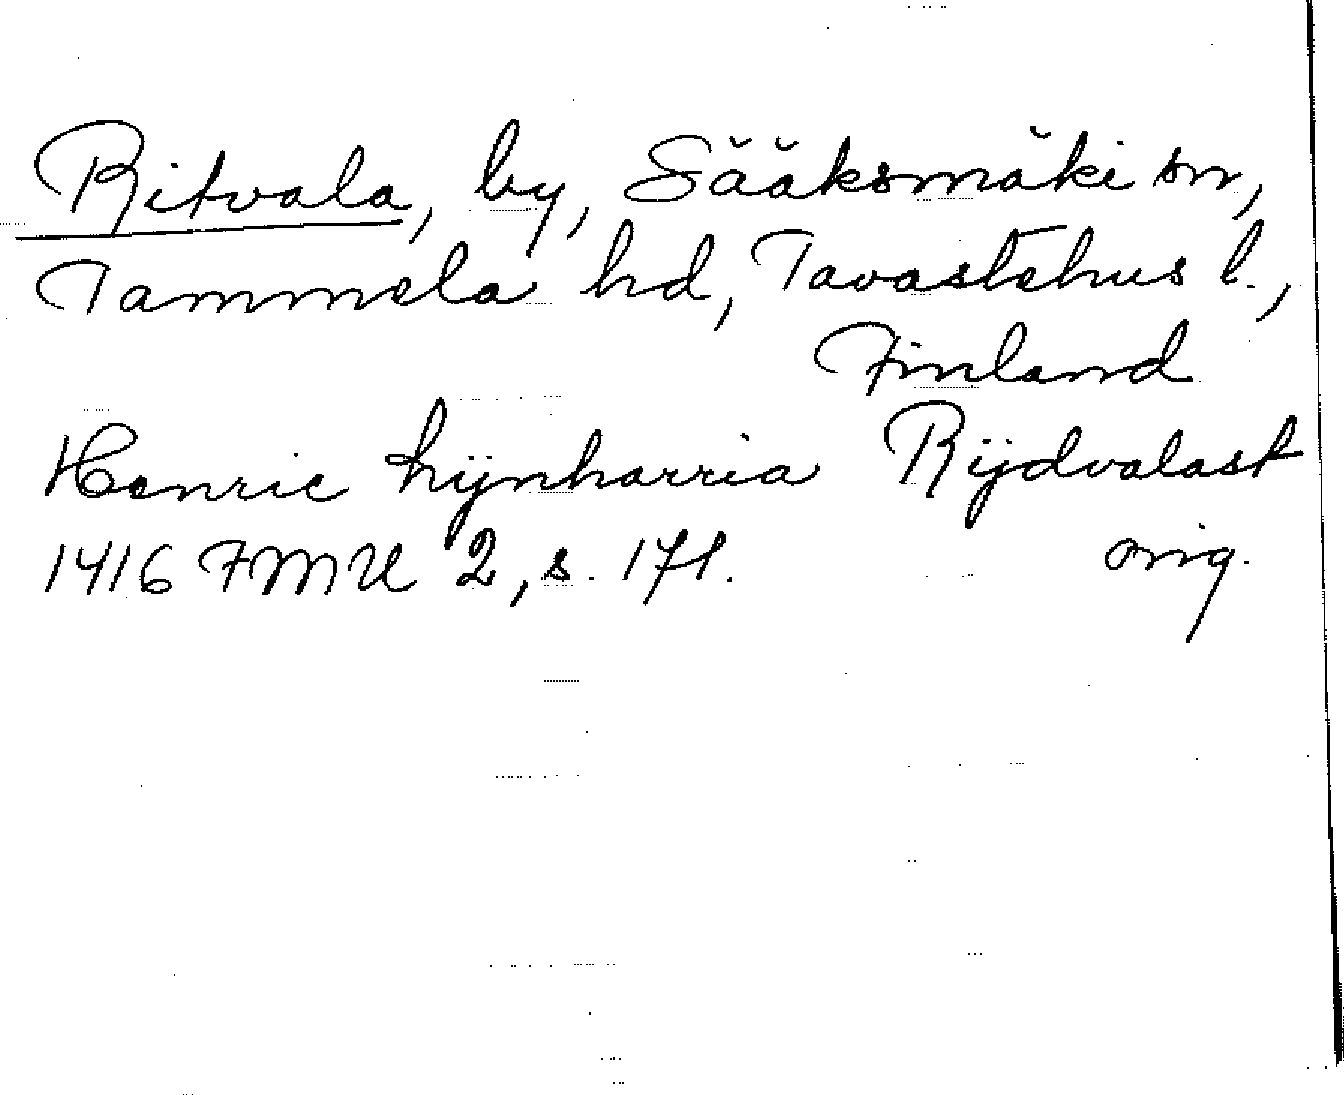 Ritvala, by, Sääksmäki sn,
Tammela hd, Tavastehus l.,
Finland
Henric hÿnharria Rÿdvalast
1416 FMU 2, s. 171. orig.